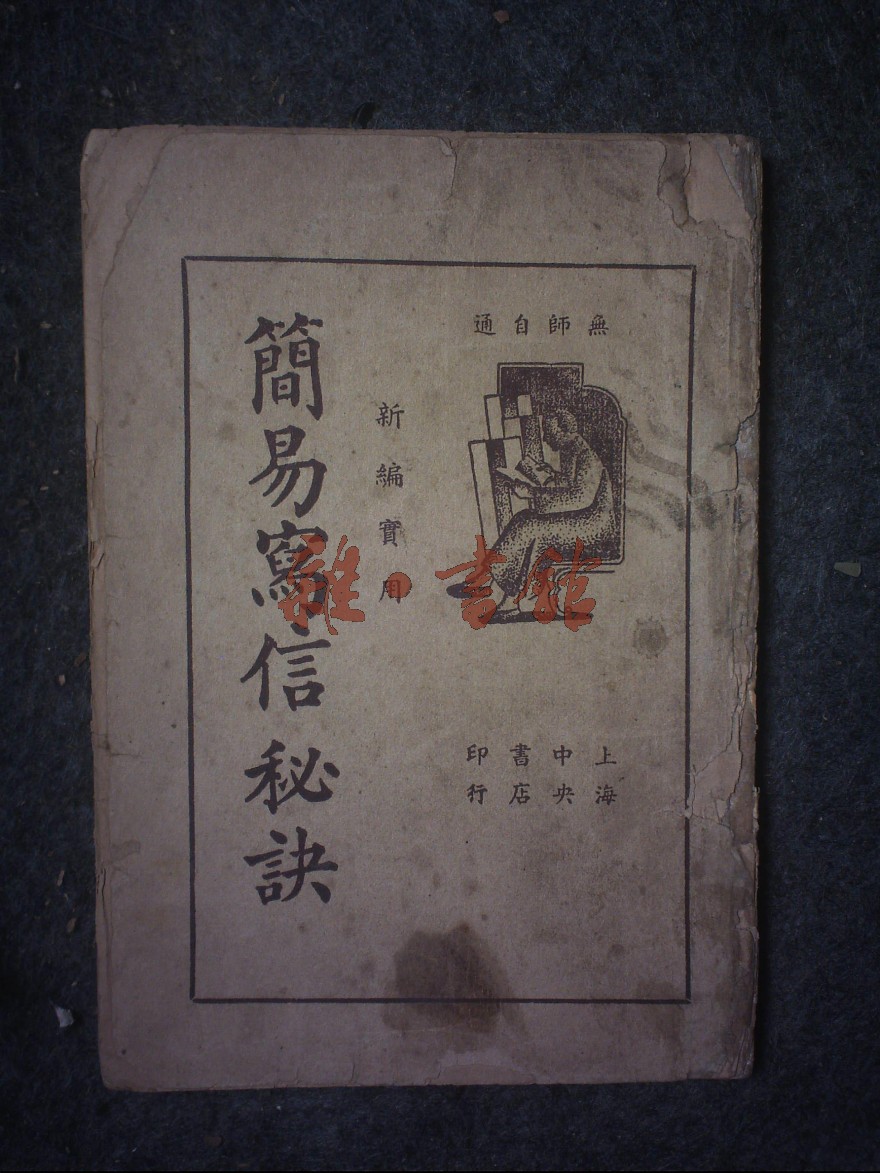 無師自通
新編實用
簡易寫信秘訣
上海
中央
書店
印行
雜·書館